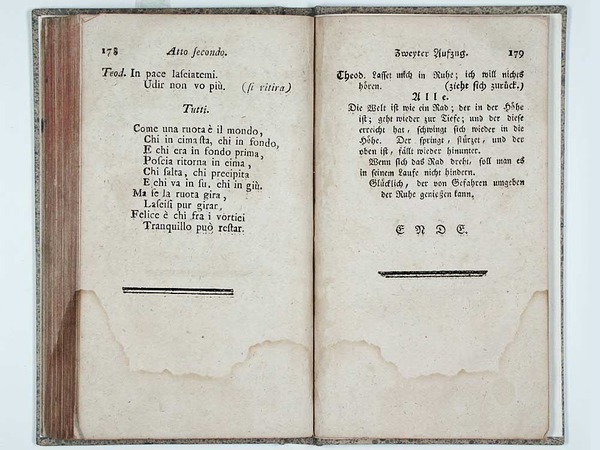 178 Atto ſecondo.
Teod. In pace laſciatemi.
Udir non vo più. (ſi ritira)
Tutti.
Come una ruota è il mondo,
Chi in cima ſta, chi in fondo,
E chi era in fondo prima,
Poſcia ritorna in cima,
Chi ſalta, chi precipita
E chi va in ſu, chi in giù.
Ma ſe la ruota gira,
Laſciſi pur girar,
Felice è chi fra i vortici
Tranquillo può reſtar.
Zweyter Aufzug. 179
Theod. Laſſet mich in Ruhe; ich will nichts
hören. (zieht ſich zurück.)
Alle.
Die Welt iſt wie ein Rad; der in der Höhe
iſt; geht wieder zur Tiefe; und der dieſe
erreicht hat, ſchwingt ſich wieder in die
Höhe. Der ſpringt, ſtürzet, und der
oben iſt, fällt wieder hinunter.
Wenn ſich das Rad dreht, ſoll man es
in ſeinem Laufe nicht hindern.
Glücklich, der von Gefahren umgeben
der Ruhe genießen kann.
ENDE.